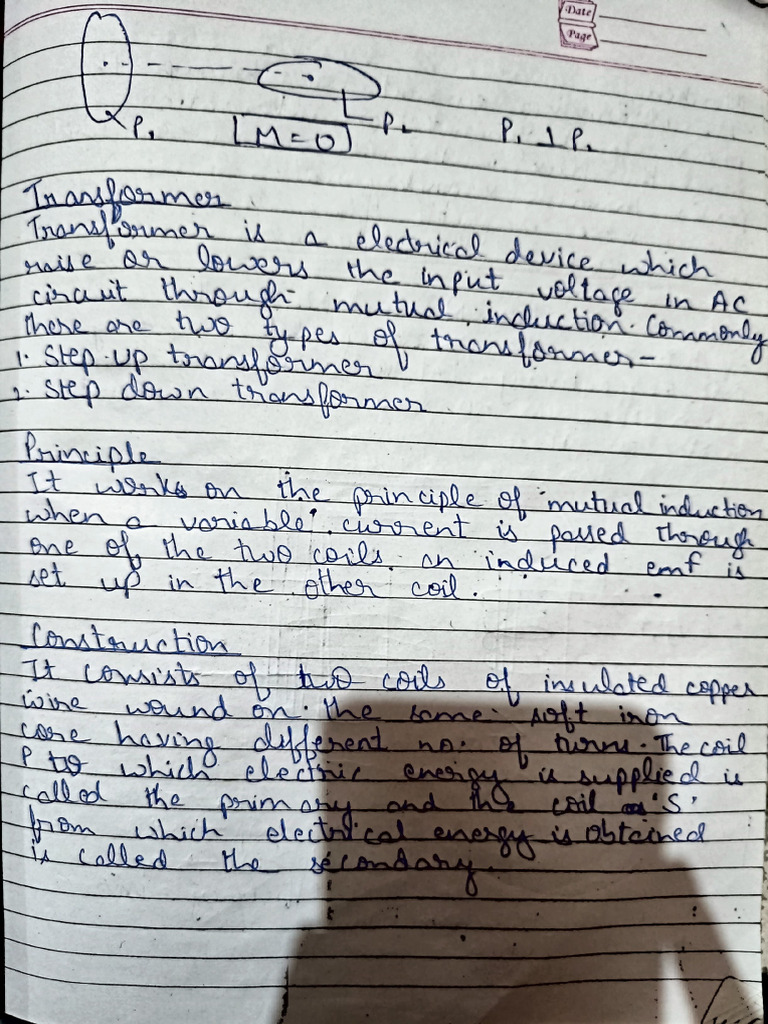 Date
Page
P₁ [M=0] P₂ P₁ ⊥ P₂
Transformer
Transformer is a electrical device which
raise or lowers the input voltage in AC
circuit through mutual induction. Commonly
there are two types of transformer-
1. Step up transformer
2. Step down transformer
Principle
It works on the principle of mutual induction
when a variable current is passed through
one of the two coils. an induced emf is
set up in the other coil.
Construction
It consists of two coils of insulated copper
wire wound on the same soft iron
core having different no. of turns. The coil
P to which electric energy is supplied is
called the primary and the coil 'S'
from which electrical energy is obtained
is called the secondary.